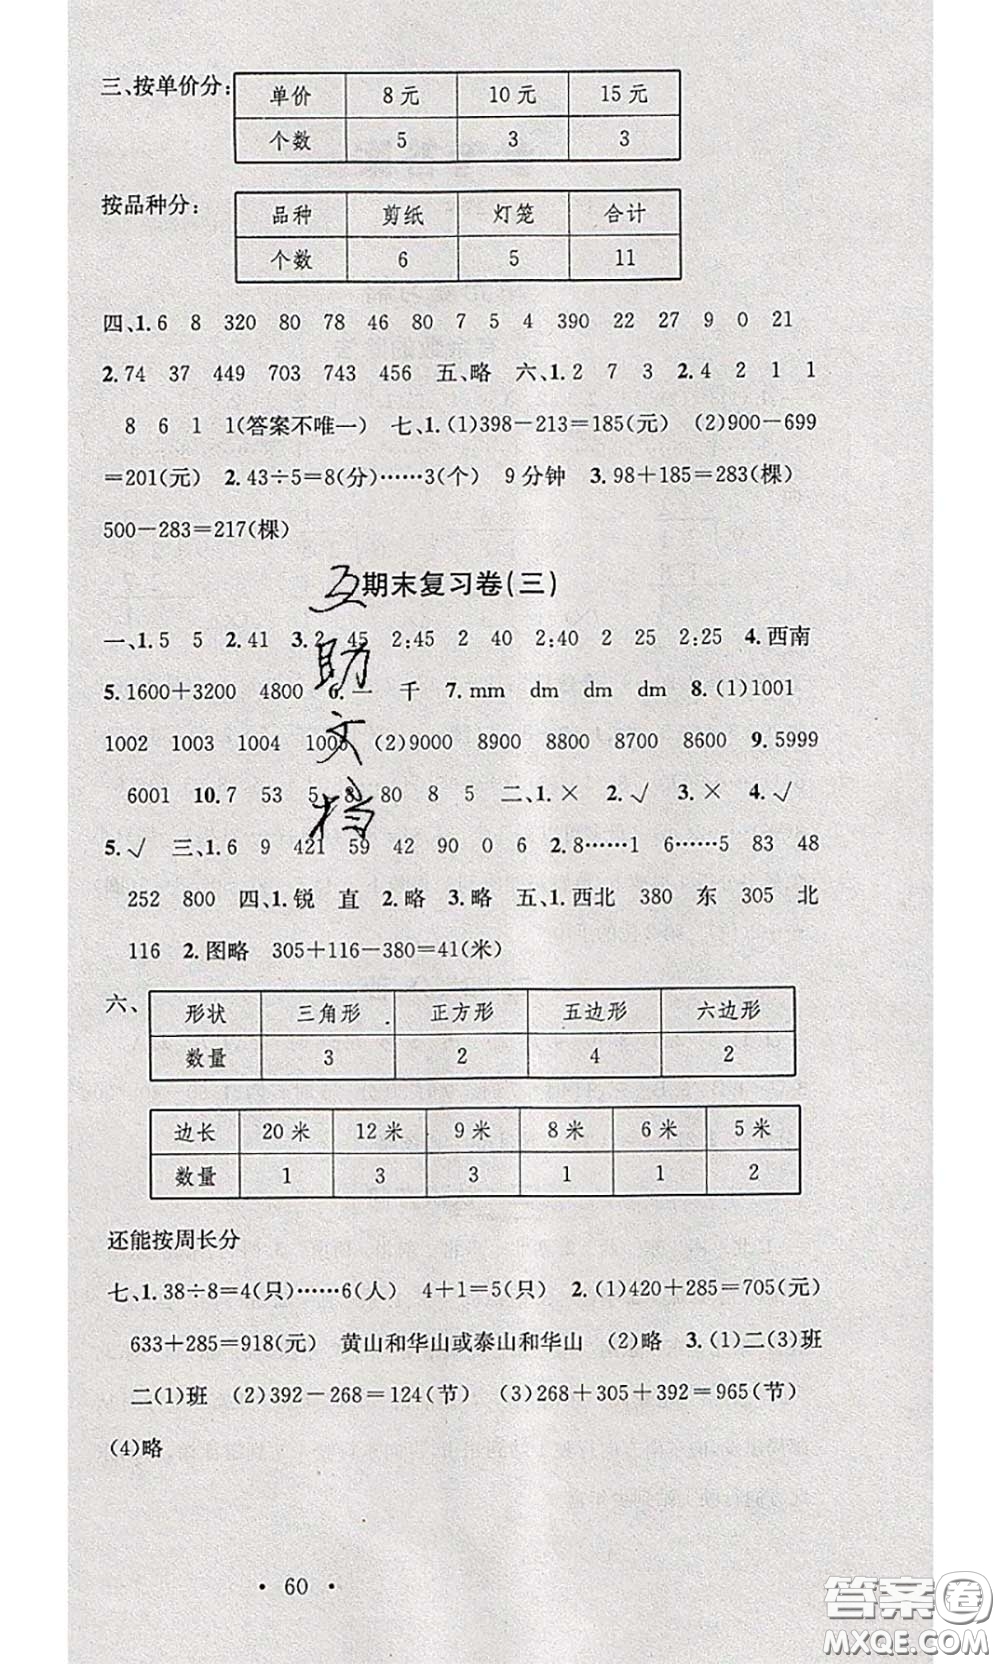 三、按单价分:
单价 8元 10元 15元
个数 5 3 3
按品种分:
品种 剪纸 灯笼 合计
个数 6 5 11
四、1.6 8 320 80 78 46 80 7 5 4 390 22 27 9 0 21
2.74 37 449 703 743 456 五、略 六、1.2 7 3 2.4 2 1 1
8 6 1 1(答案不唯一) 七、1.(1)398-213=185(元) (2)900-699
=201(元) 2.43÷5=8(分)……3(个) 9分钟 3.98+185=283(棵)
500-283=217(棵)
互助文档
期末复习卷(三)
一、1.5 5 2.41 3.2 45 2:45 2 40 2:40 2 25 2:25 4.西南
5.1600+3200 4800 6.一 千 7.mm dm dm dm 8.(1)1001
1002 1003 1004 1005 (2)9000 8900 8800 8700 8600 9.5999
6001 10.7 53 5 8 80 8 5 二、1.× 2.√ 3.× 4.√
5.√ 三、1.6 9 421 59 42 90 0 6 2.8……1 6……5 83 48
252 800 四、1.锐 直 2.略 3.略 五、1.西北 380 东 305 北
116 2.图略 305+116-380=41(米)
六、
形状 三角形 正方形 五边形 六边形
数量 3 2 4 2
边长 20米 12米 9米 8米 6米 5米
数量 1 3 3 1 1 2
还能按周长分
七、1.38÷8=4(只)……6(人) 4+1=5(只) 2.(1)420+285=705(元)
633+285=918(元) 黄山和华山或泰山和华山 (2)略 3.(1)二(3)班
二(1)班 (2)392-268=124(节) (3)268+305+392=965(节)
(4)略
· 60 ·
答案圈
MXQE.COM